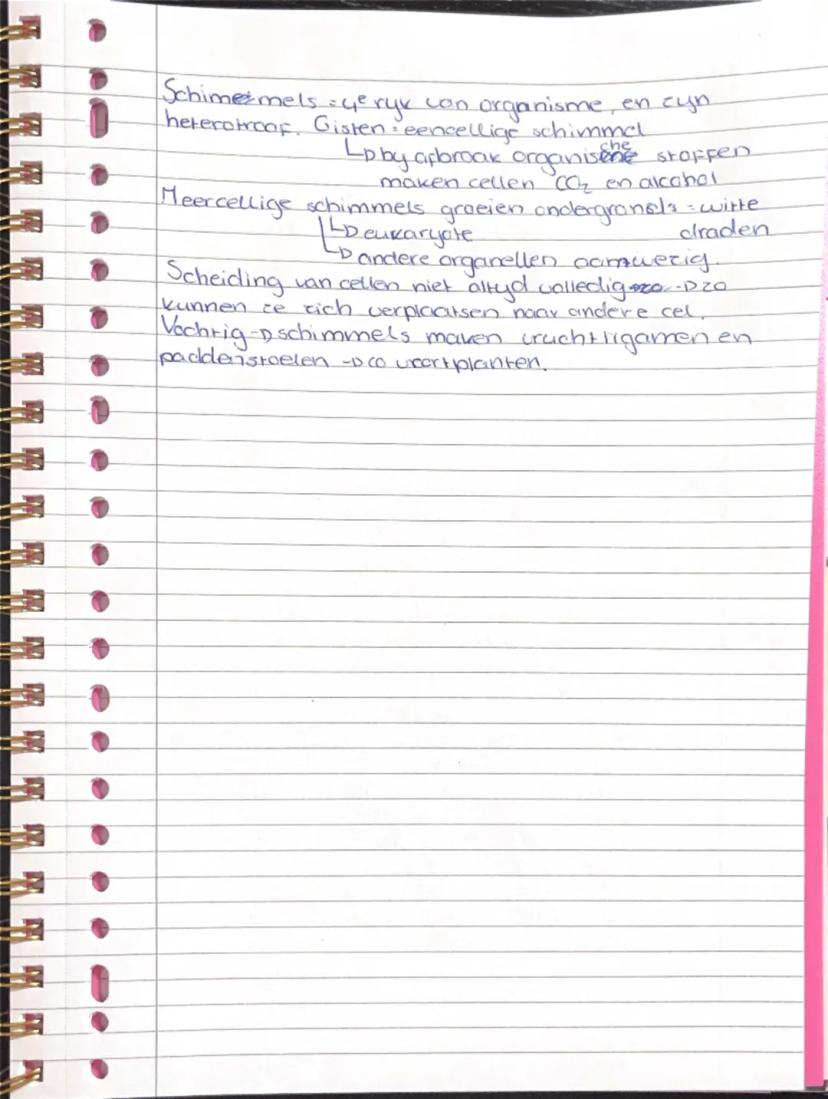 Schimmels = 4e ryk van organisme, en zyn
heterotroof. Gisten = eencellige schimmel
↳ by afbraak organische stoffen
maken cellen CO₂ en alcohol
Meercellige schimmels groeien ondergronds = witte
↳ eukaryote draden
↳ andere organellen aanwezig.
Scheiding van cellen niet altyd volledig → zo
kunnen ze zich verplaatsen naar andere cel.
Vochtig → schimmels maken vruchtligamen en
paddenstoelen → zo voortplanten.